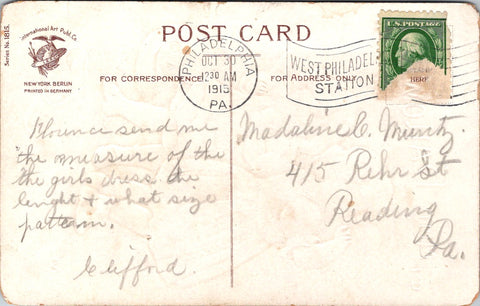 POST CARD
Series No. 1815.
International Art Publ. Co.
NEW YORK BERLIN
PRINTED IN GERMANY
FOR CORRESPONDENCE
FOR ADDRESS ONLY
PHILADELPHIA
OCT 30
1230 AM
1913
PA.
WEST PHILADEL
STATION
U.S. POSTAGE
HERE
Florence send me
the measure of the
the girls dress the
lenght & what size
pattern.
Clifford.
Madaline C. Muntz.
415 Rehr st
Reading
Pa.